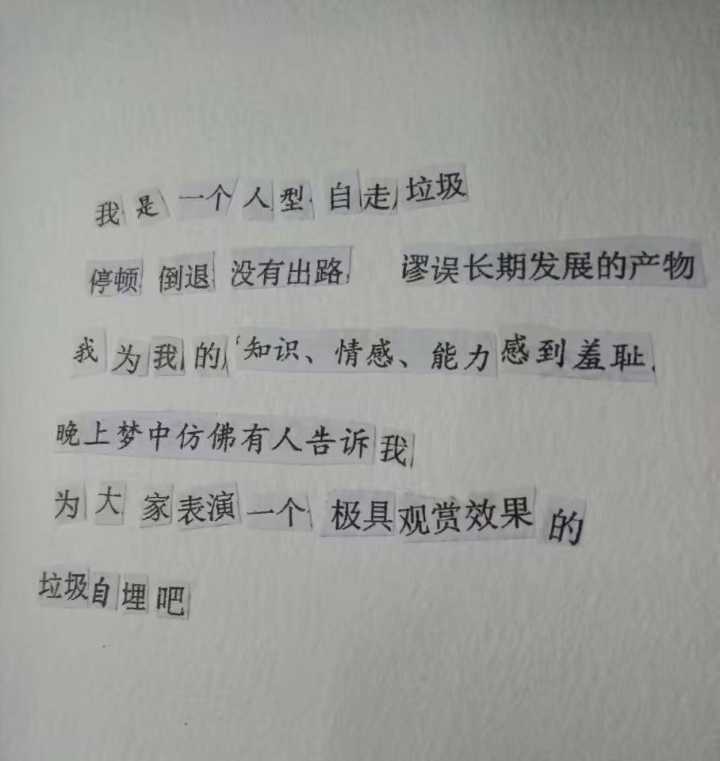 我是一个人型自走垃圾
停顿倒退没有出路 谬误长期发展的产物
我为我的‘知识、情感、能力感到羞耻
晚上梦中仿佛有人告诉我
为大家表演一个极具观赏效果的
垃圾自埋吧